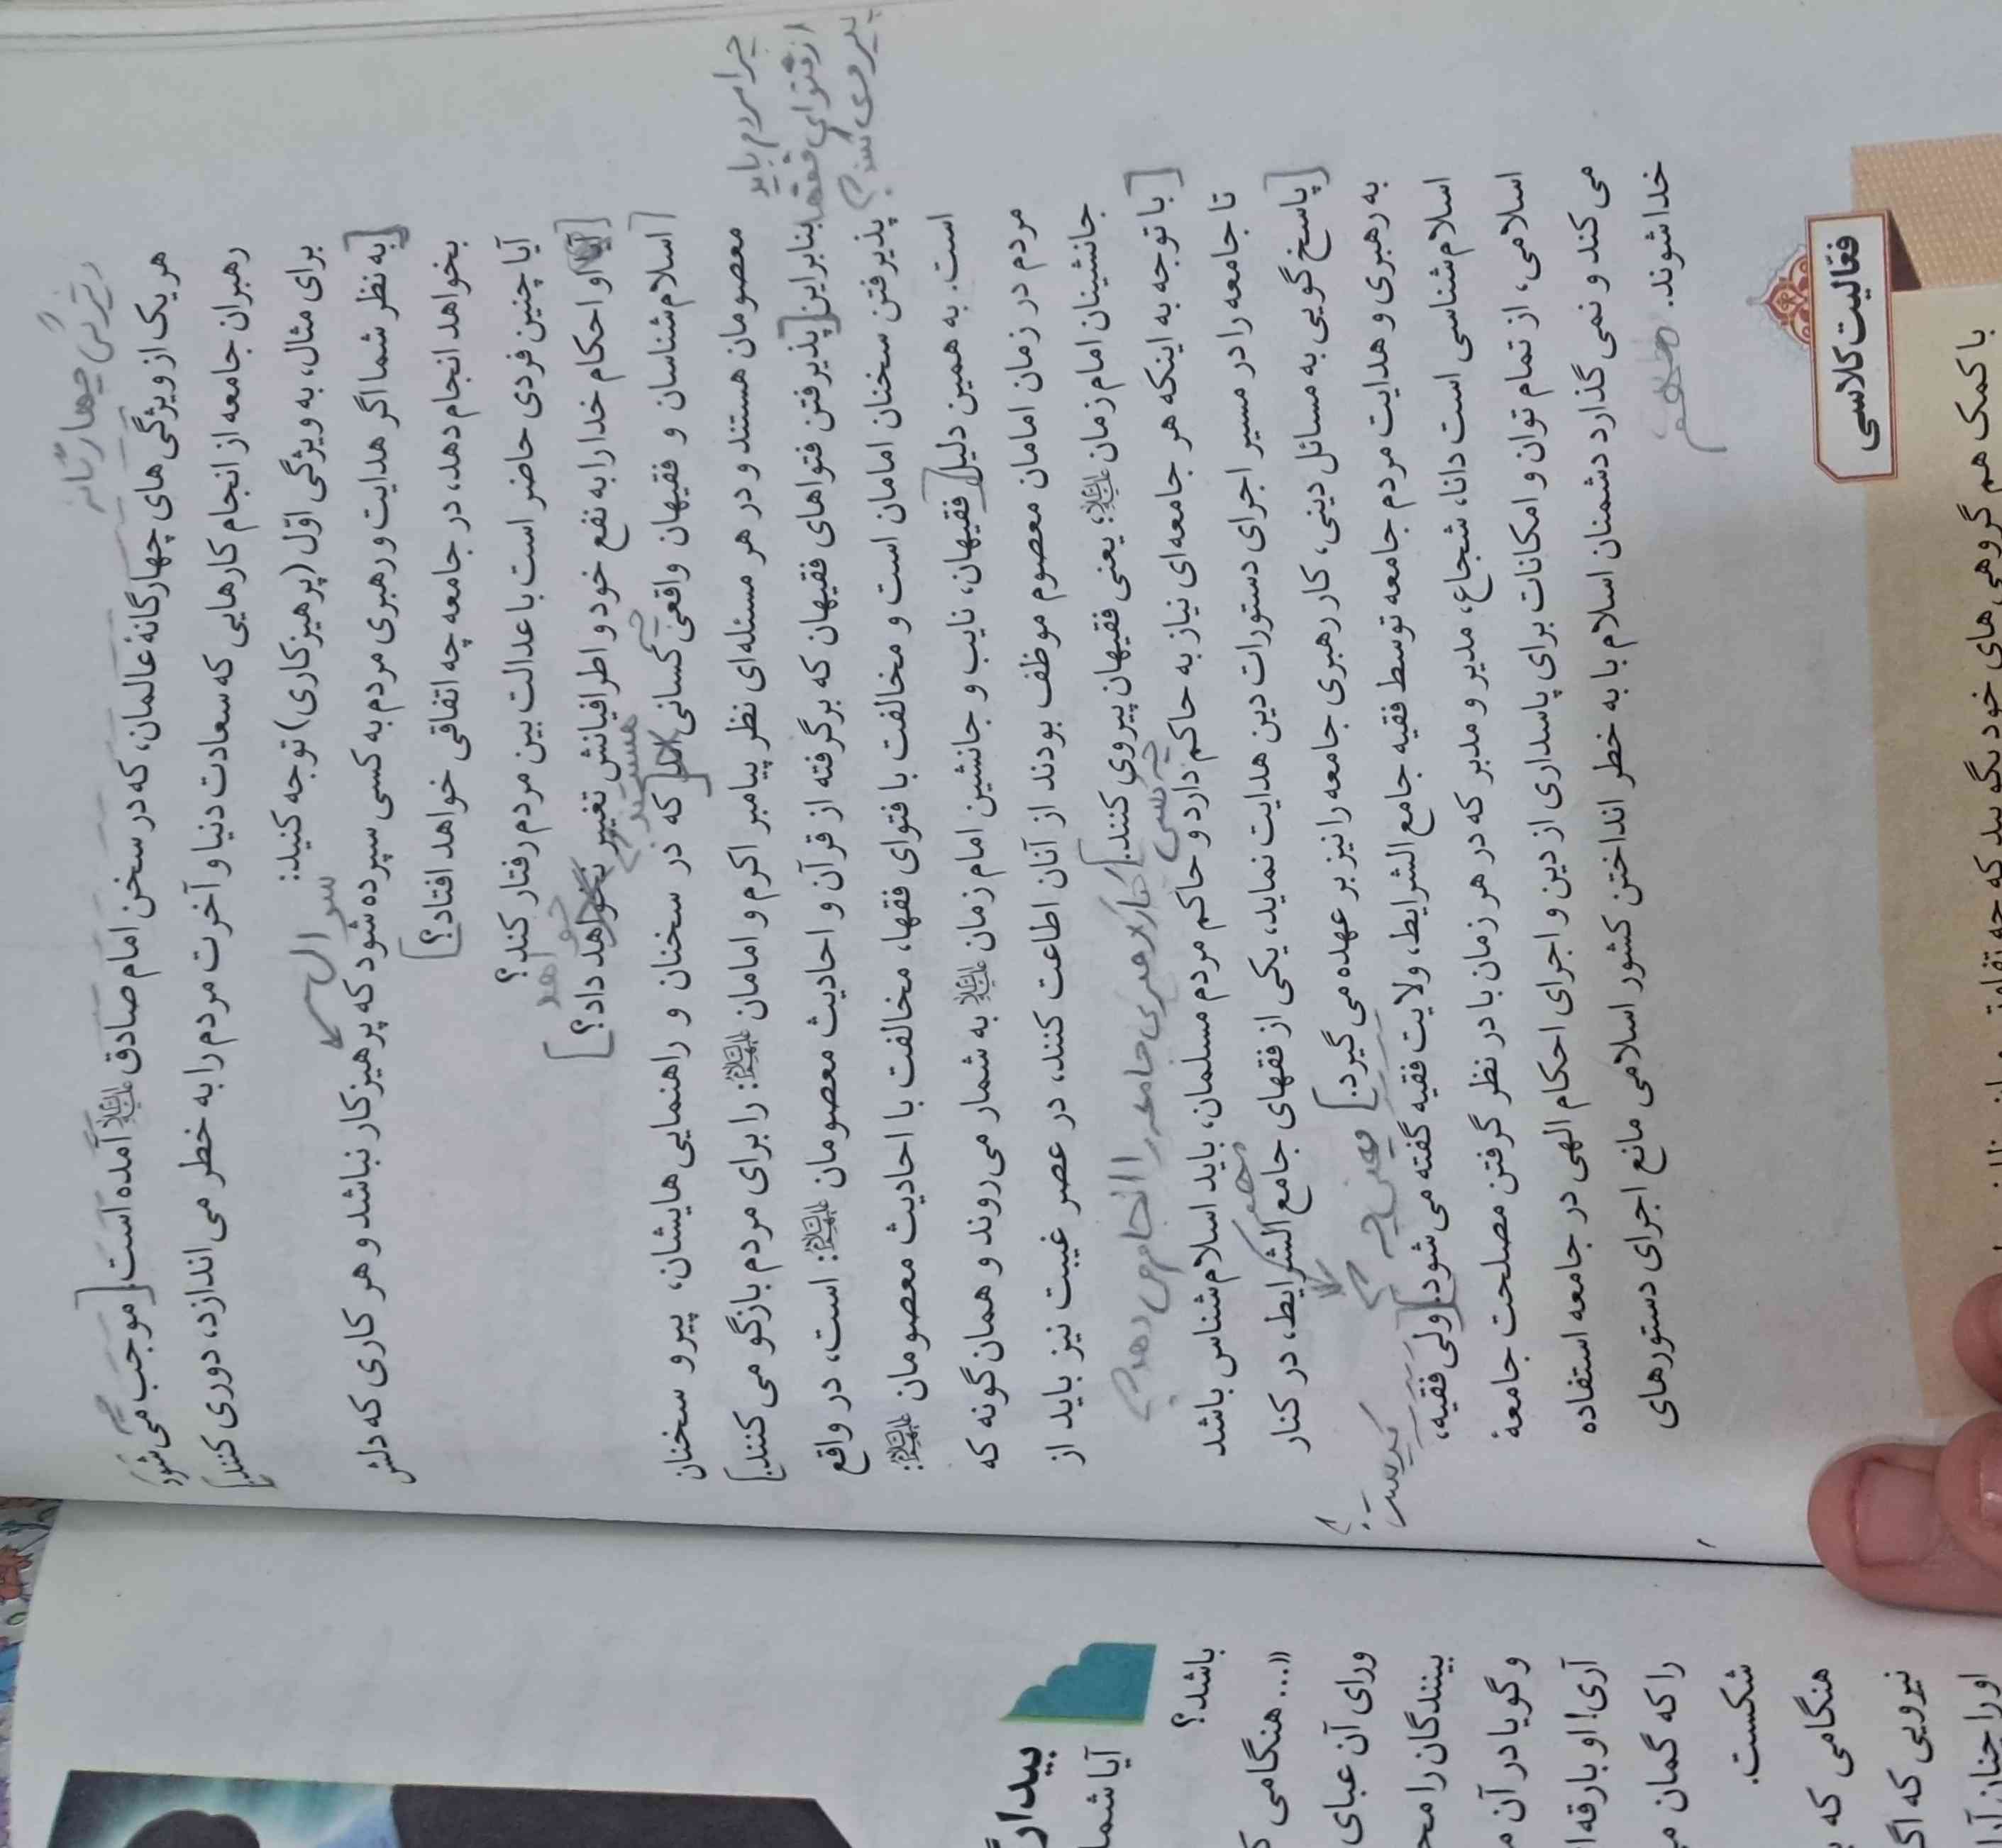 هر یک از ویژگی های چهارگانهٔ عالمان، که در سخن امام صادق علیه السلام آمده است [موجب می شود
رهبران جامعه از انجام کارهایی که سعادت دنیا و آخرت مردم را به خطر می اندازد، دوری کنند.]
برای مثال، به ویژگی اوّل (پرهیزکاری) توجه کنید:
سوال
[به نظر شما اگر هدایت و رهبری مردم به کسی سپرده شود که پرهیزکار نباشد و هر کاری که دلش
بخواهد انجام دهد، در جامعه چه اتفاقی خواهد افتاد؟]
آیا چنین فردی حاضر است با عدالت بین مردم رفتار کند؟
[آیا او احکام خدا را به نفع خود و اطرافیانش تغییر نخواهد داد؟]
[اسلام شناسان و فقیهان واقعی کسانی اند که در سخنان و راهنمایی هایشان، پیرو سخنان
معصومان هستند و در هر مسئله ای نظر پیامبر اکرم و امامان علیهم السلام را برای مردم بازگو می کنند.]
بنابراین [پذیرفتن فتواهای فقیهان که برگرفته از قرآن و احادیث معصومان علیهم السلام است، در واقع
پذیرفتن سخنان امامان است و مخالفت با فتوای فقها، مخالفت با احادیث معصومان علیهم السلام
است. به همین دلیل [فقیهان، نایب و جانشین امام زمان علیه السلام به شمار می روند و همان گونه که
مردم در زمان امامان معصوم موظف بودند از آنان اطاعت کنند، در عصر غیبت نیز باید از
جانشینان امام زمان علیه السلام؛ یعنی فقیهان پیروی کنند.]
چه کسی کار رهبری جامعه را انجام می دهد؟
[با توجه به اینکه هر جامعه ای نیاز به حاکم دارد و حاکم مردم مسلمان، باید اسلام شناس باشد
تا جامعه را در مسیر اجرای دستورات دین هدایت نماید، یکی از فقهای جامع الشرایط، در کنار
[پاسخ گویی به مسائل دینی، کار رهبری جامعه را نیز بر عهده می گیرد.]
یعنی چه؟
به رهبری و هدایت مردم جامعه توسط فقیه جامع الشرایط، ولایت فقیه گفته می شود. [ولی فقیه،
کیست؟
اسلام شناسی است دانا، شجاع، مدیر و مدبر که در هر زمان با در نظر گرفتن مصلحت جامعهٔ
اسلامی، از تمام توان و امکانات برای پاسداری از دین و اجرای احکام الهی در جامعه استفاده
می کند و نمی گذارد دشمنان اسلام با به خطر انداختن کشور اسلامی مانع اجرای دستورهای
خدا شوند.
فعّالیت کلاسی
با کمک هم گروهی های خود بگویید که چه تفاوتی
ویژگی چهارگانه
چرا مردم باید
از فتوای فقها
پیروی کنند؟
بیدار
آیا شما
باشد؟
«... هنگامی
ورای آن عبای
بینندگان را محـ
و گویا در آن
آری! او بارقه
را که گمان
شکست.
هنگامی که
نیرویی که اگـ
او را چنان